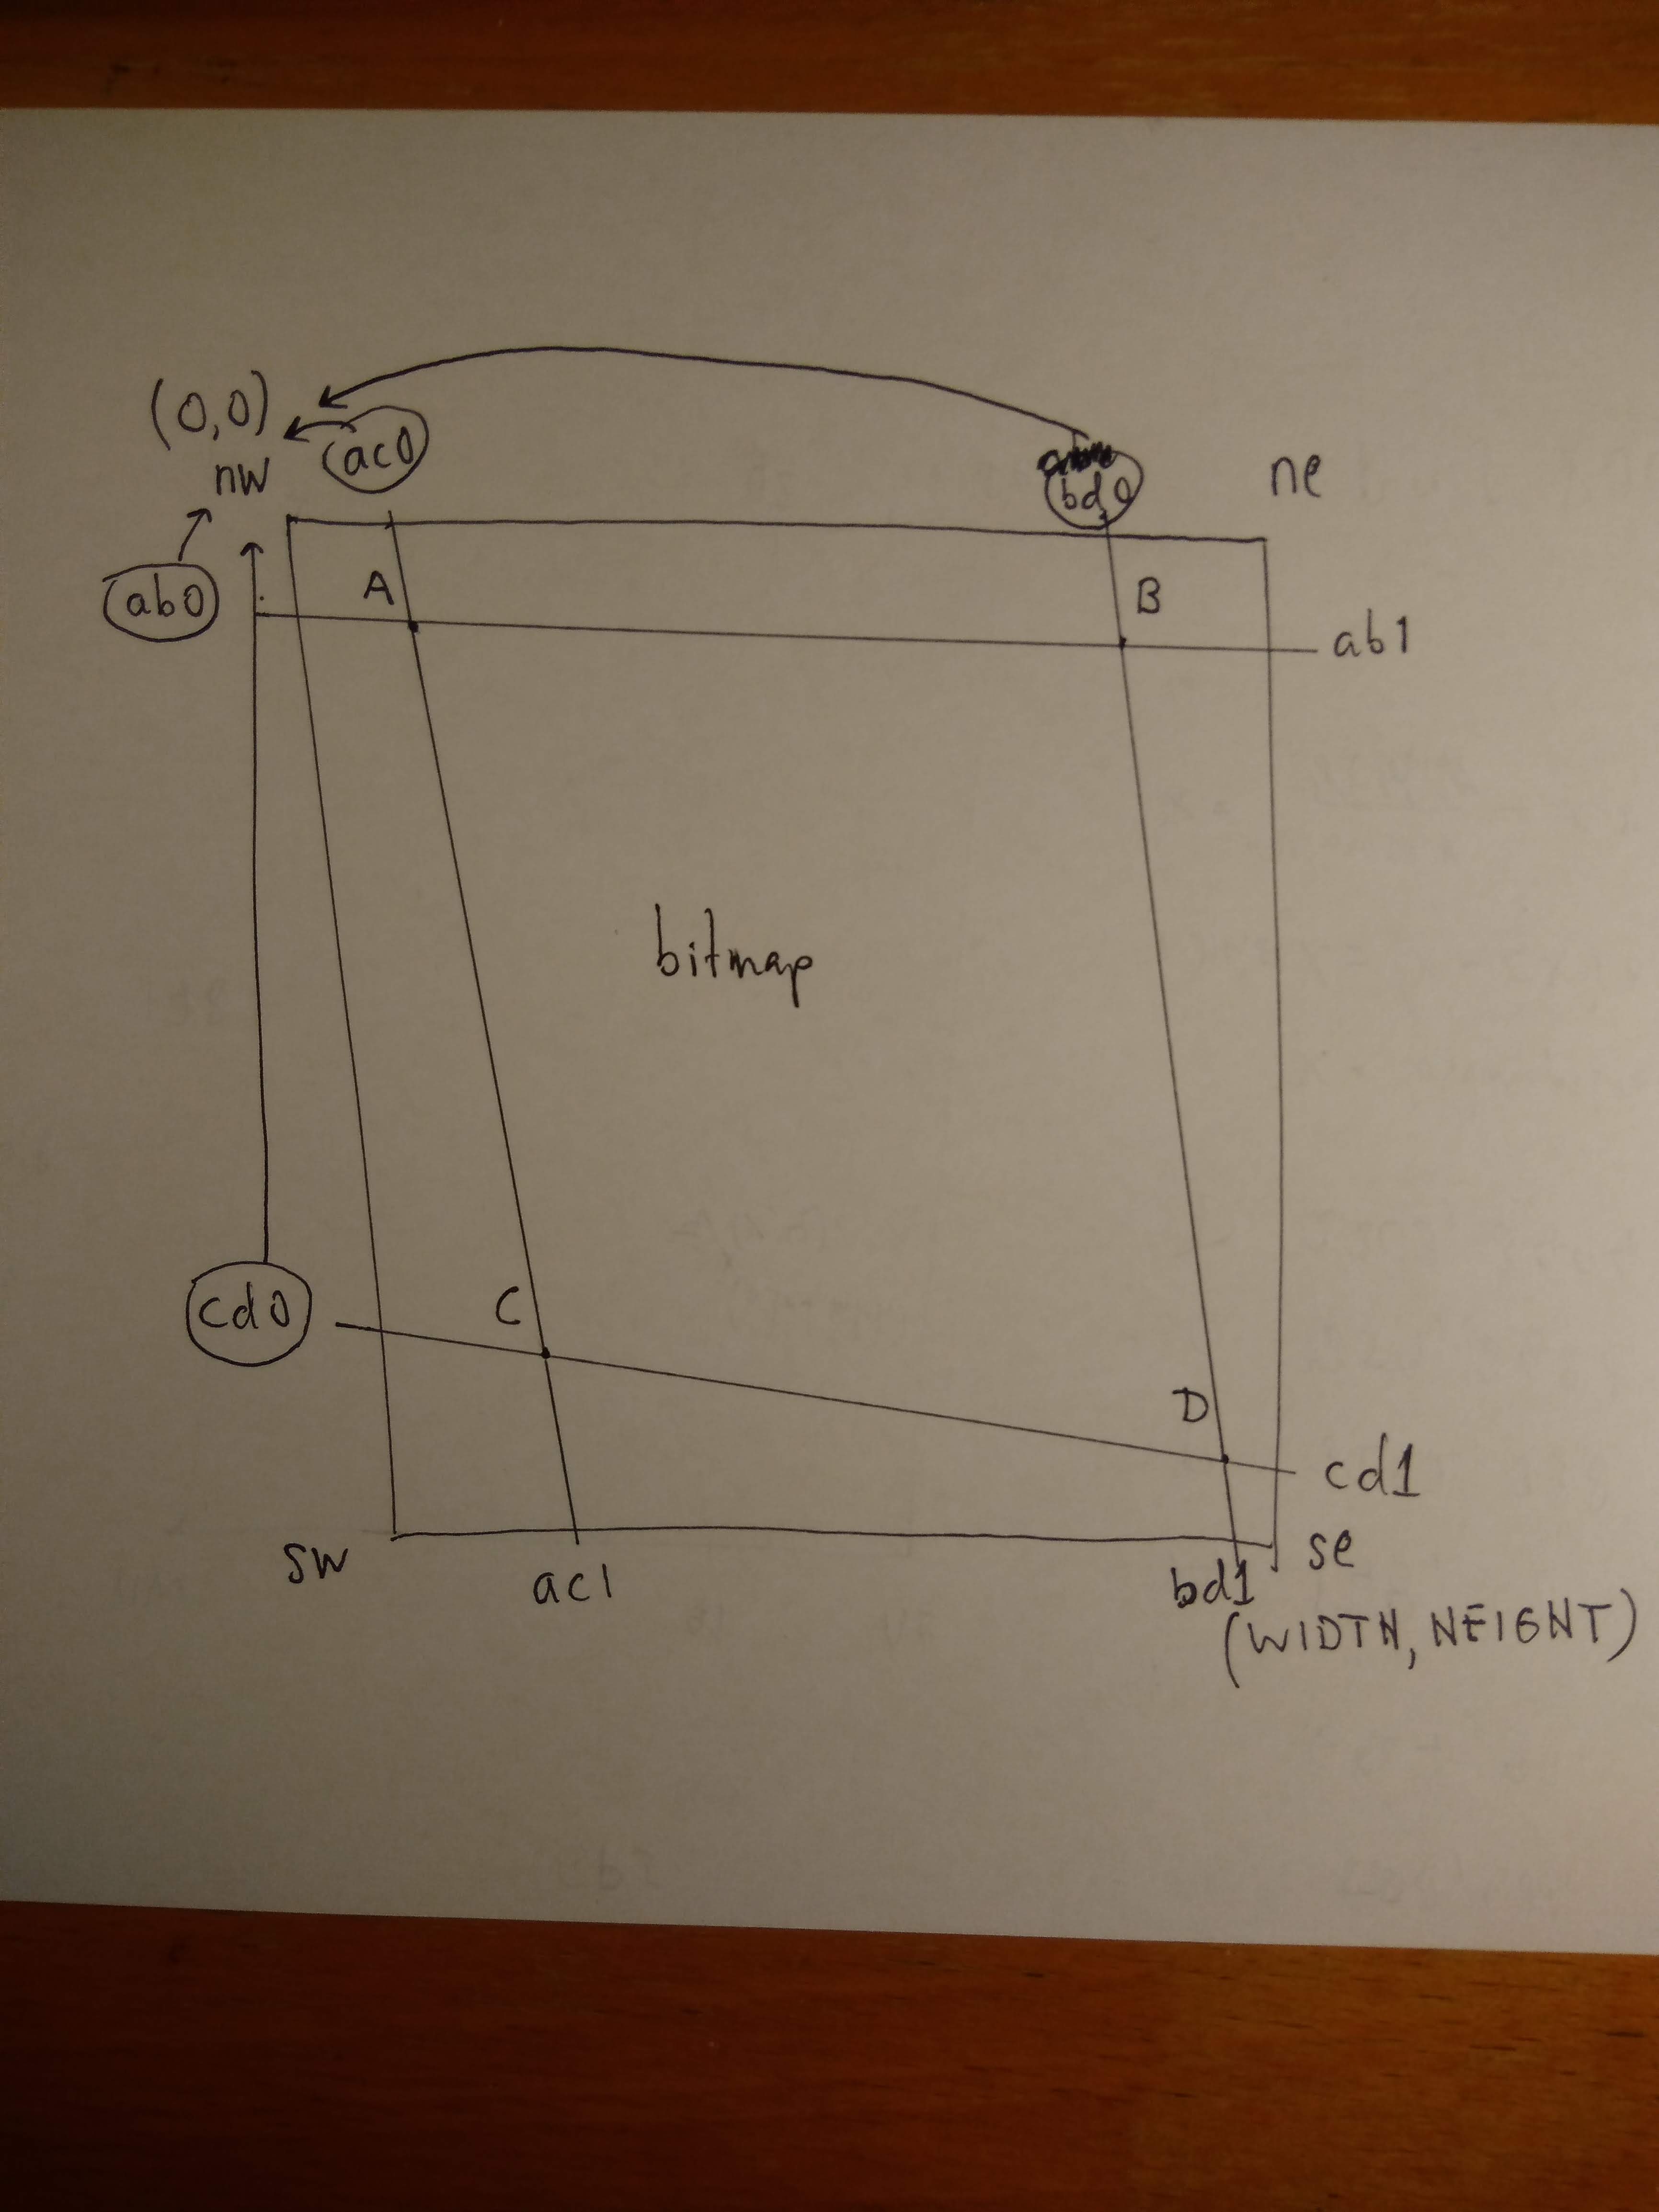 (0,0)
nw
ac0
bd0
ne
ab0
A
B
ab1
bitmap
cd0
C
D
cd1
sw
ac1
bd1
se
(WIDTH, HEIGHT)